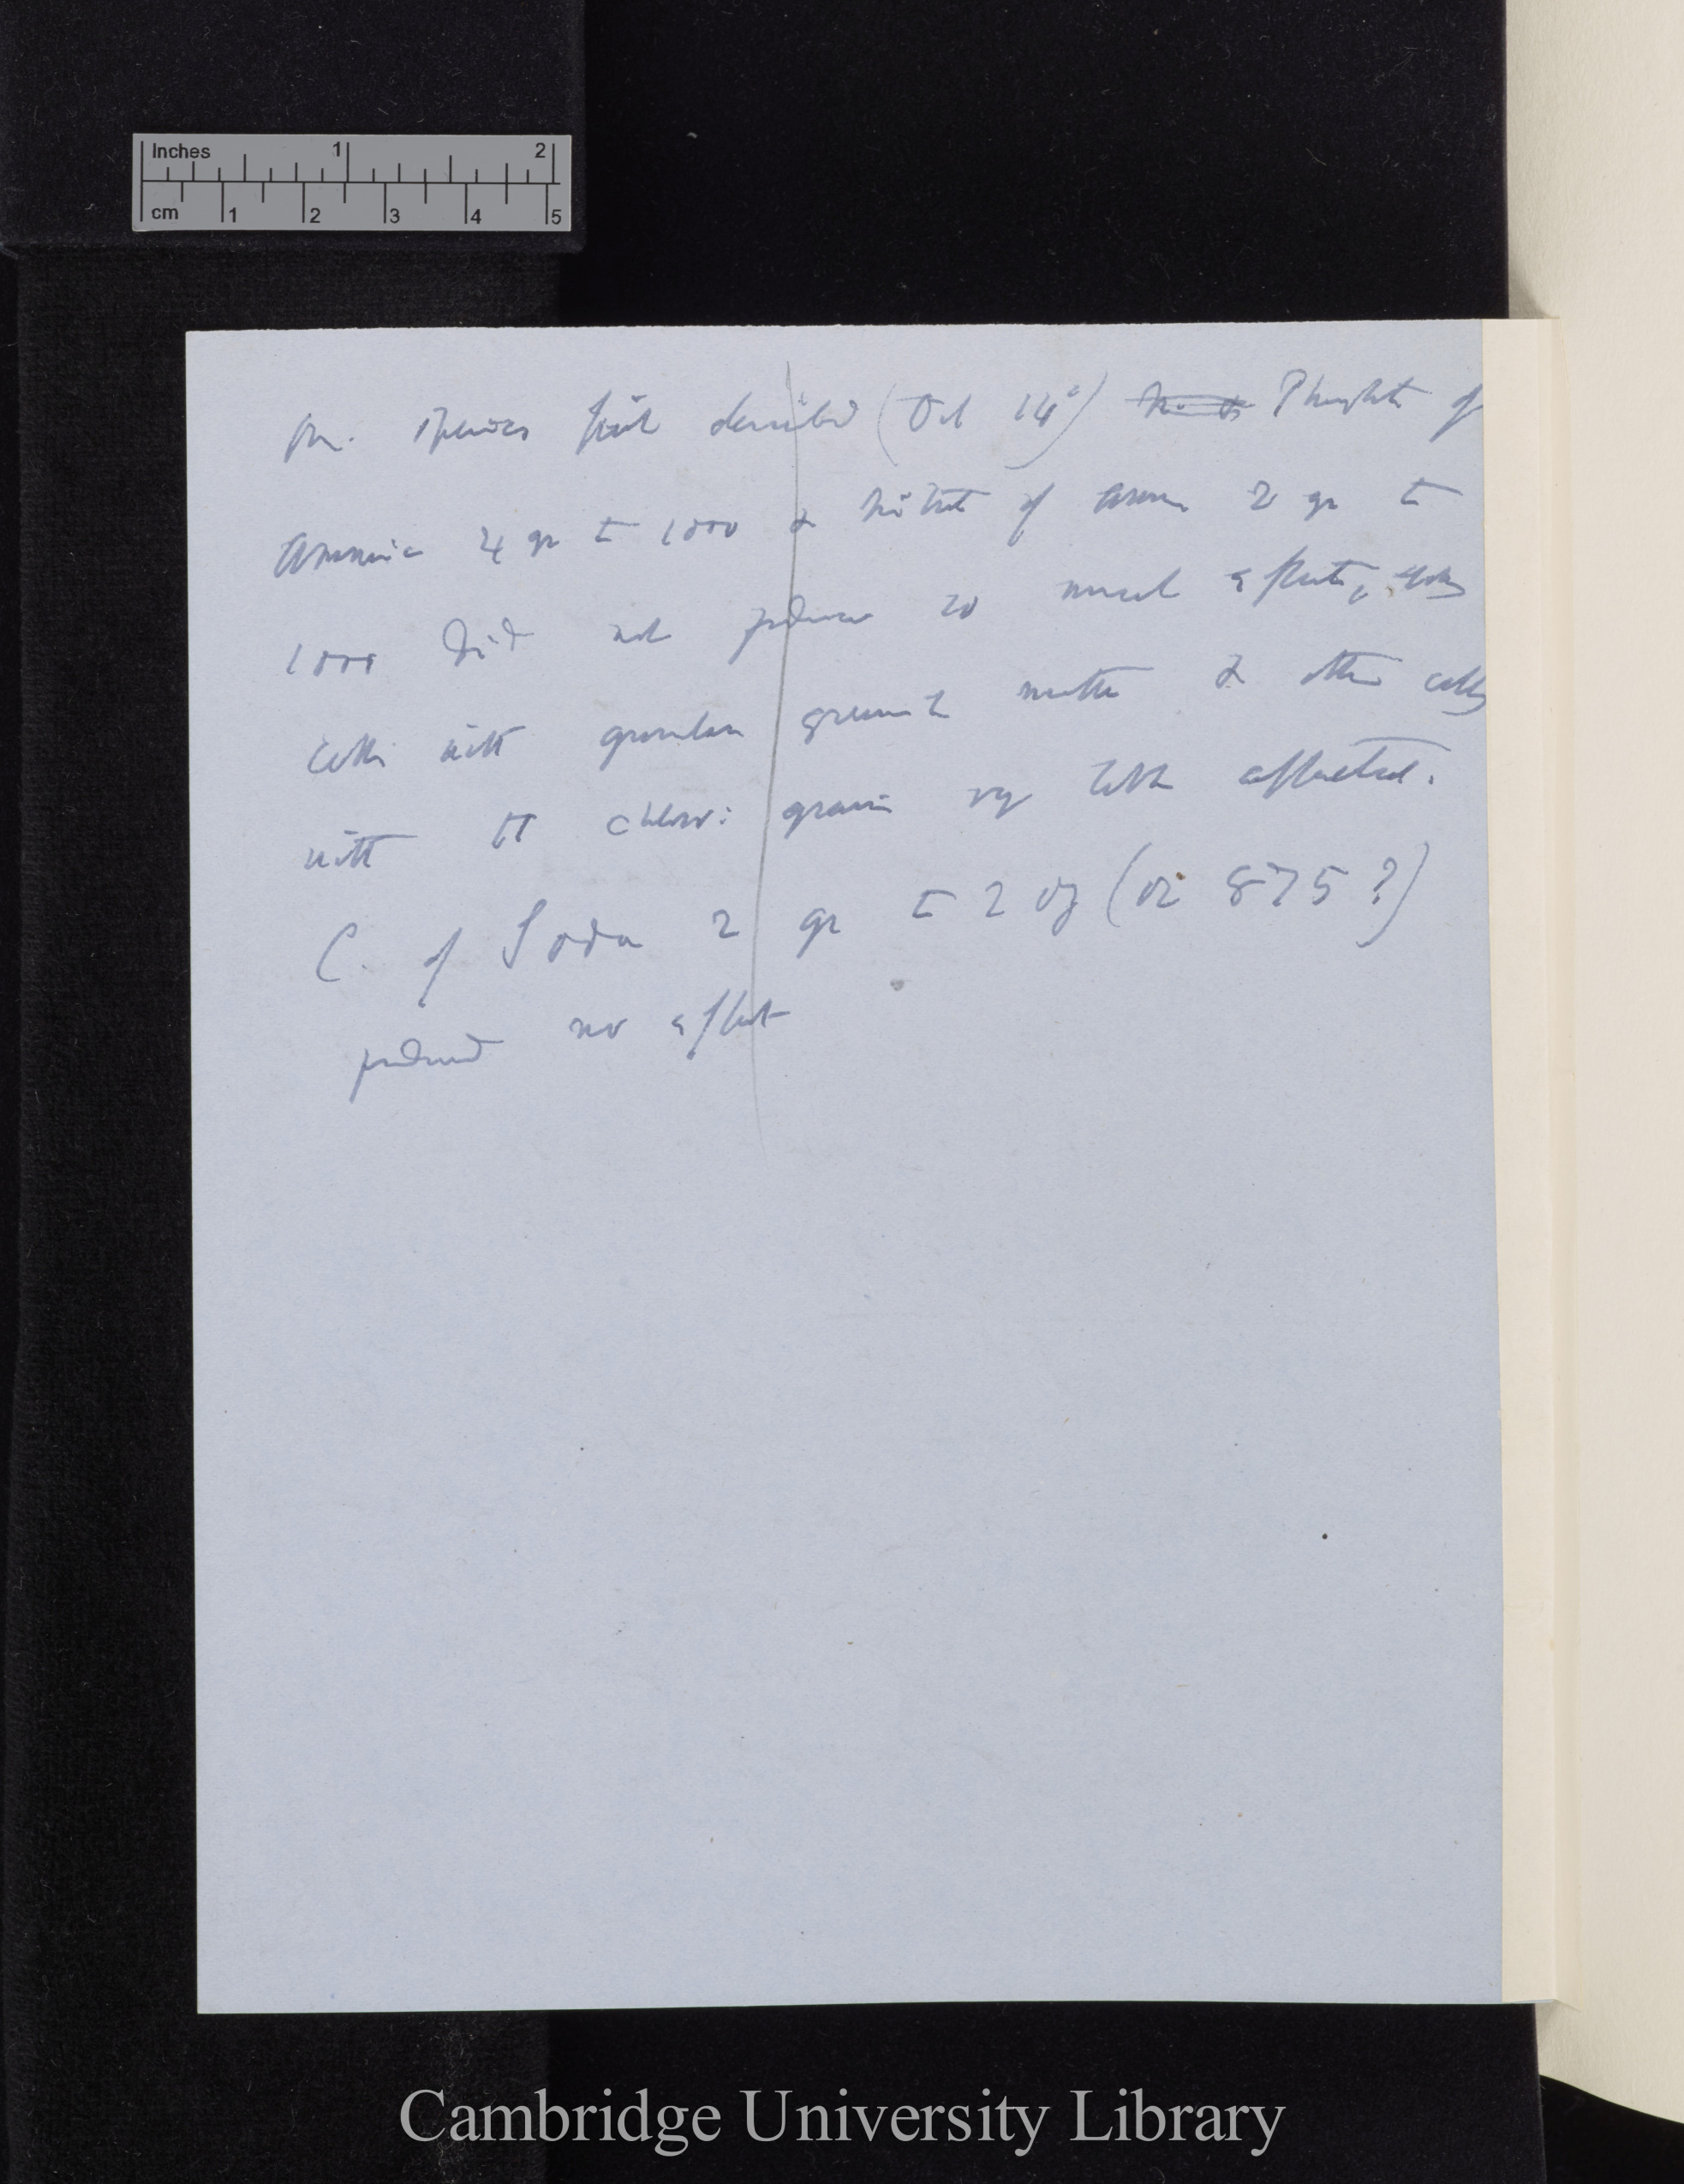 Inches 1 2
cm 1 2 3 4 5
On. species first described (Oct 14th) Phosphate of
Ammonia 4 gr to 1000 & Nitrate of Amm 2 gr to
1000 did not produce so much effect,
cells with granular ground matter & other cells
with chlor: grains vy little affected.
C. of Soda 2 gr to 2 oz (or 875?)
produced no effect
Cambridge University Library